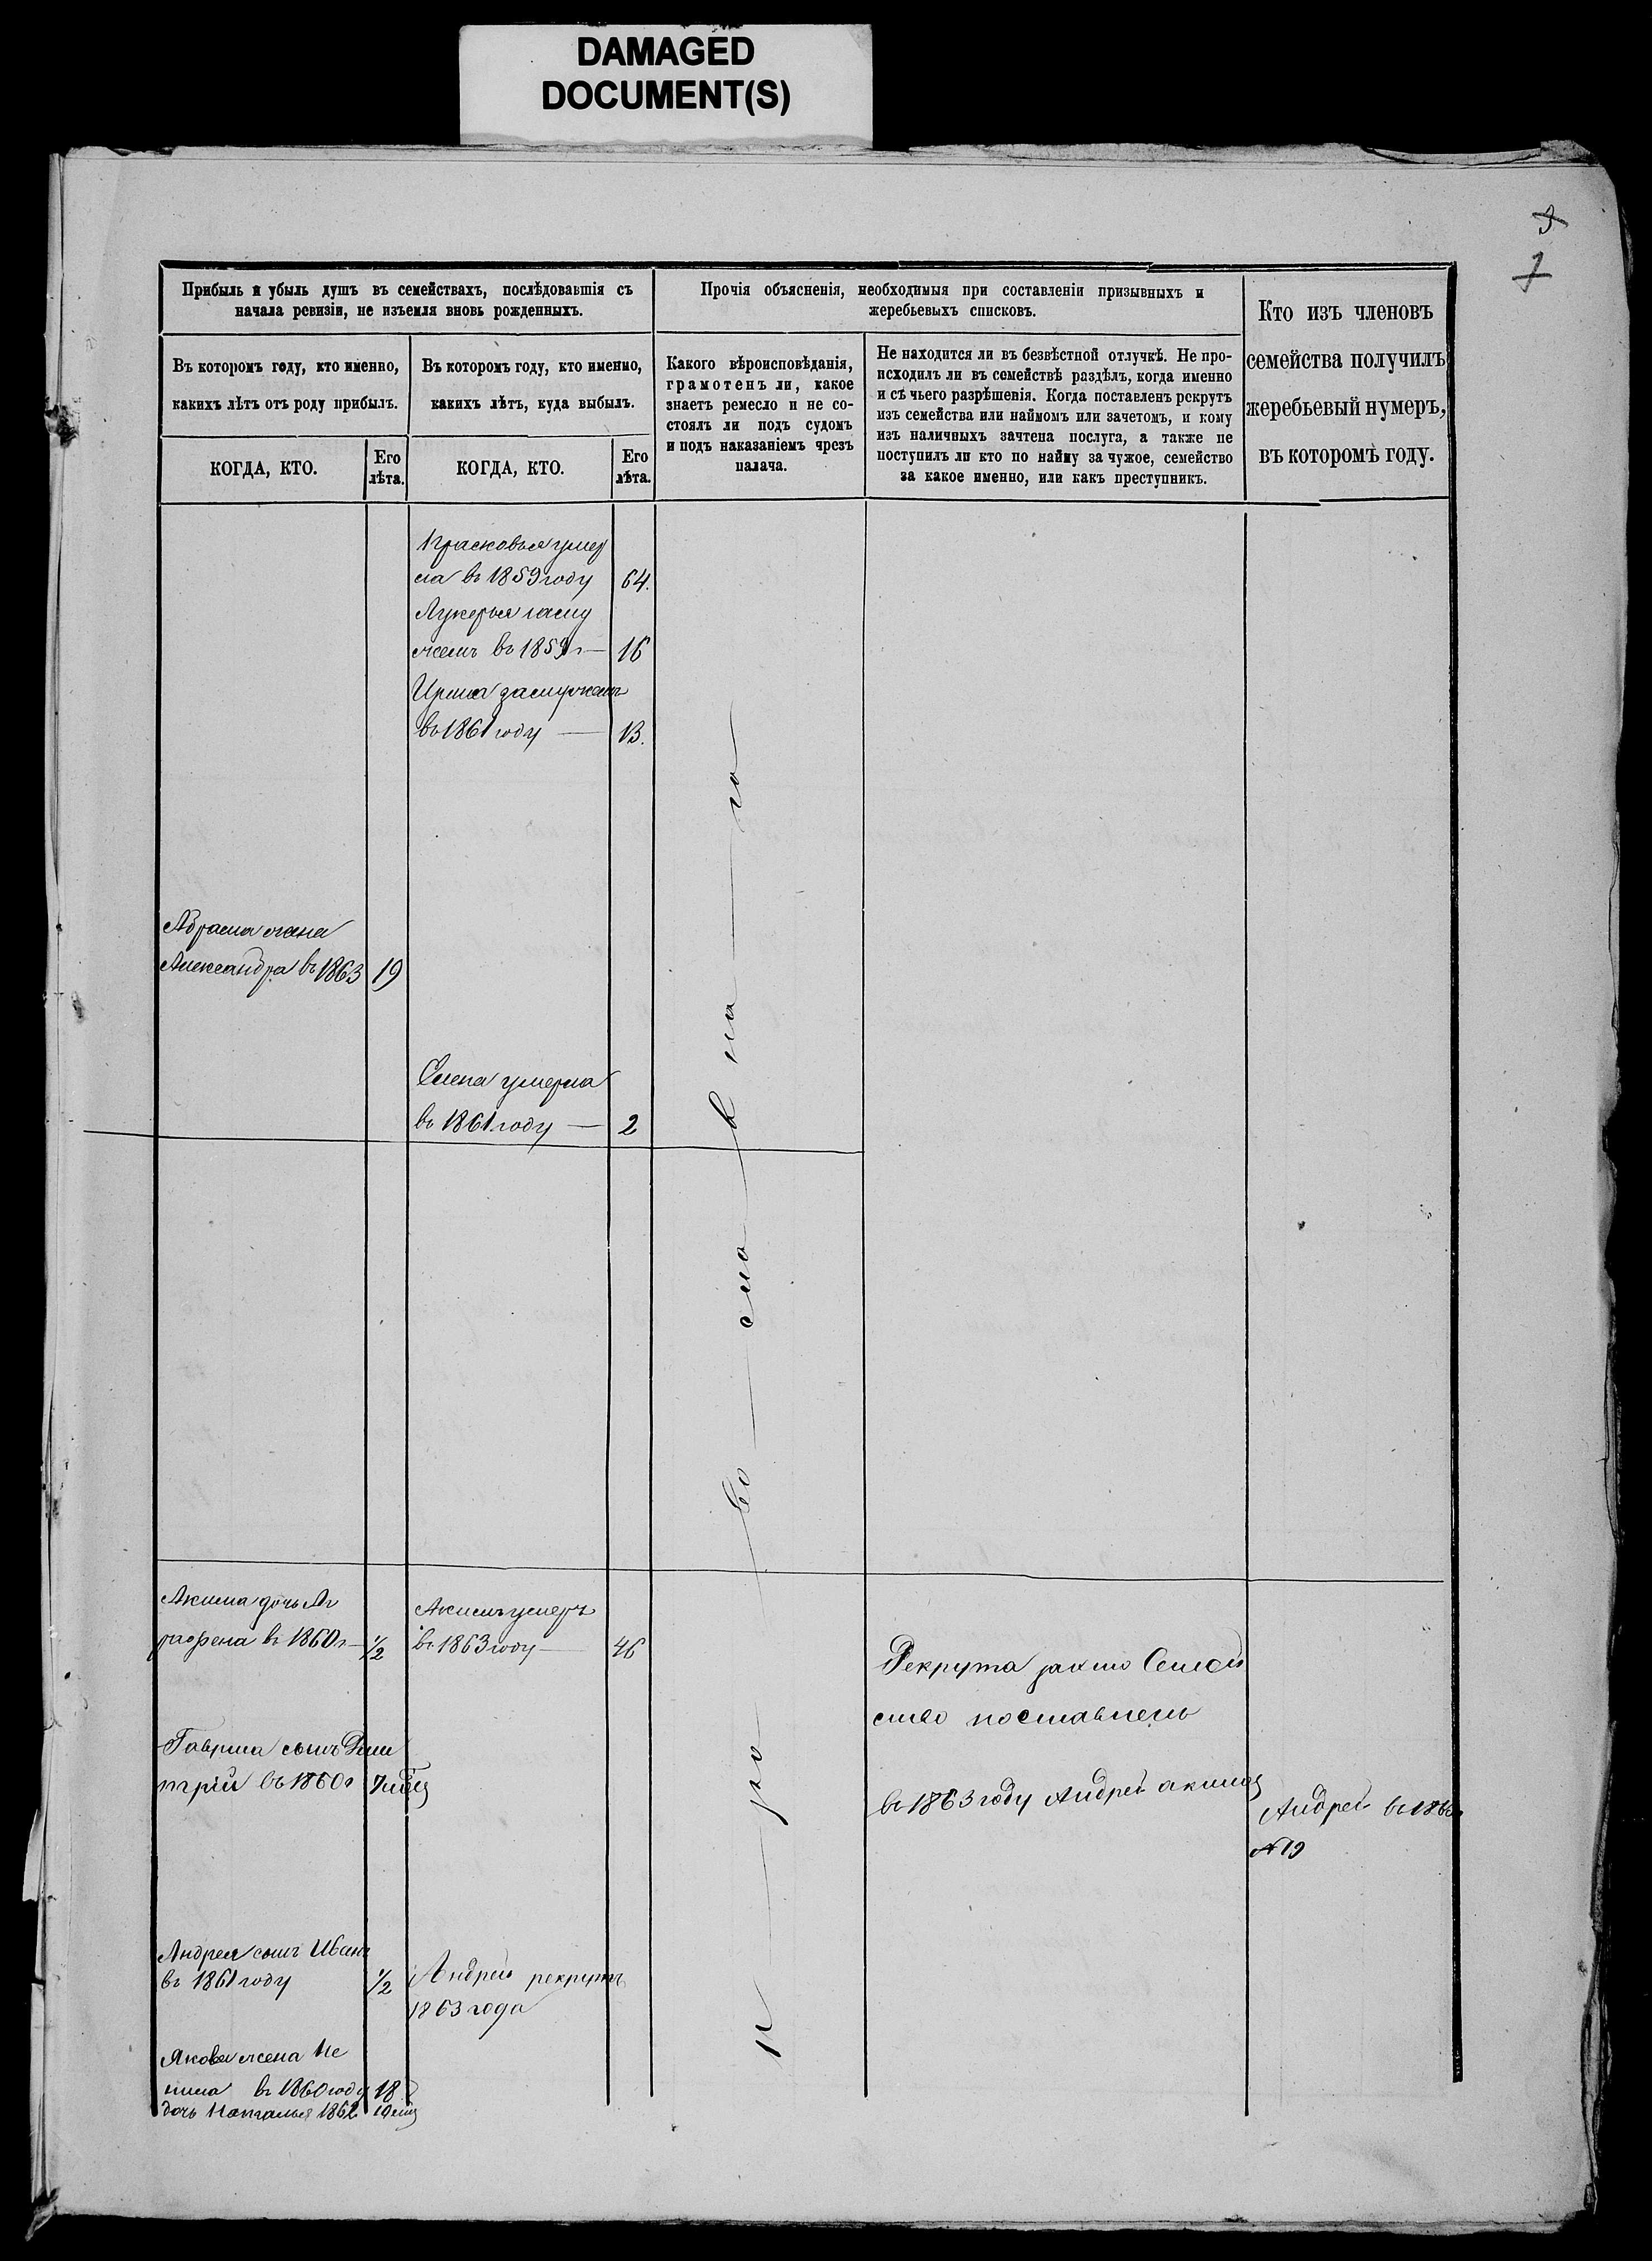 DAMAGED
DOCUMENT(S)
7
Прибыль и убыль душъ въ семействахъ, послѣдовавшія съ
начала ревизіи, не изъемля вновь рожденныхъ.
Прочія объясненія, необходимыя при составленіи призывныхъ и
жеребьевыхъ списковъ.
Кто изъ членовъ
семейства получилъ
жеребьевый нумеръ,
въ которомъ году.
Въ которомъ году, кто именно,
какихъ лѣтъ отъ роду прибылъ.
Въ которомъ году, кто именно,
какихъ лѣтъ, куда выбылъ.
Какого вѣроисповѣданія,
грамотенъ ли, какое
знаетъ ремесло и не со-
стоялъ ли подъ судомъ
и подъ наказаніемъ чрезъ
палача.
Не находится ли въ безвѣстной отлучкѣ. Не про-
исходилъ ли въ семействѣ раздѣлъ, когда именно
и съ чьего разрѣшенія. Когда поставленъ рекрутъ
изъ семейства или наймомъ или зачетомъ, и кому
изъ наличныхъ зачтена послуга, а также не
поступилъ ли кто по найму за чужое, семейство
за какое именно, или какъ преступникъ.
КОГДА, КТО.
Его
лѣта.
КОГДА, КТО.
Его
лѣта.
Прасковья умер
ла въ 1859 году 64.
Лукерья
жемъ въ 1859 г 16
Ирина замужемъ
въ 1861 году 13.
Абрама жена
Александра въ 1863 19
Елена умерла
въ 1861 году 2
Пра во сла в на го
Акима дочь Аг
рафена въ 1860 г 1/2
Акимъ умеръ
въ 1863 году 46
Рекрута Семей
ство поставлень
въ 1863 году Андрей
Гаврила сынъ Дми
трій въ 1860 г
Андрей въ 1863
№ 19
Андрея сынъ Иванъ
въ 1861 году 1/2
Андрей рекрутъ
1863 года
Якова жена
въ 1860 году 18
дочь Наталья 1862